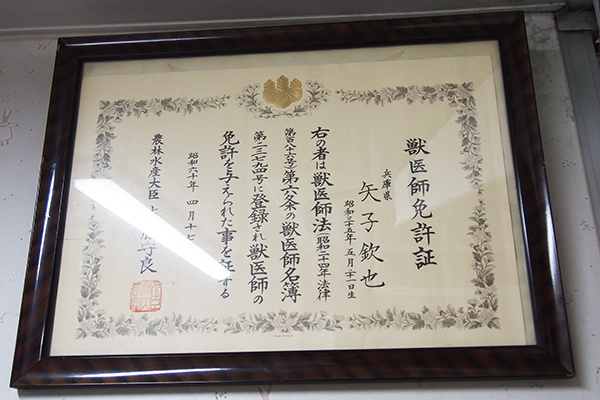 獣医師免許証
兵庫県
矢子欽也
昭和三十五年五月二十一日生
右の者は獣医師法(昭和二十四年法律
第百八十六号)第六条の獣医師名簿
第二三七九四号に登録され獣医師の
免許を与えられた事を証する
昭和六十年 四月十七
農林水産大臣 藤守良